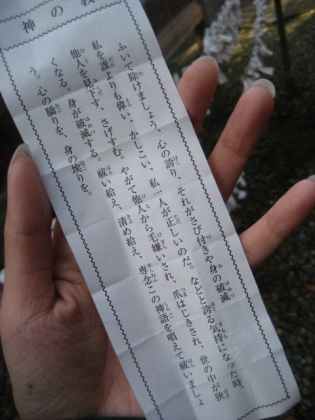 神の教
ふいて除けましょう、心の誇り、
それがさび付きや身の破滅
私を誰よりも偉い、かしこい、私一人が正しいのだ。などと誇る気持になった時、
他人を見下す、さげすむ。やがて他人から毛嫌いされ、爪はじきされ、世の中が狭
くなる。身が破滅する。祓い給え、清め給え、専念この神語を唱えて祓いましょ
う。心の驕りを、身の埃りを。